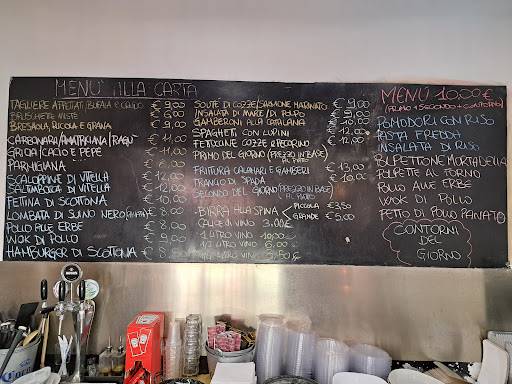 MENÙ ALLA CARTA
TAGLIERE AFFETTATI/BUFALA E CRUDO € 9,00
BRUSCHETTE MISTE € 6,00
BRESAOLA, RUCOLA E GRANA € 9,00
CARBONARA/AMATRICIANA/RAGÙ € 11,00
GRICIA/CACIO E PEPE € 11,00
PARMIGIANA
SCALOPPINE DI VITELLA
SALTIMBOCCA DI VITELLA
FETTINA DI SCOTTONA
LOMBATA DI SUINO NERO
POLLO ALLE ERBE
WOK DI POLLO € 9,00
HAMBURGER DI SCOTTONA
SOUTÉ DI COZZE/SALMONE MARINATO € 9,00
INSALATA DI MARE/DI POLPO
GAMBERONI ALLA CATALANA
SPAGHETTI CON LUPINI € 12,00
FETTUCINE COZZE E PECORINO € 12,00
PRIMO DEL GIORNO (PREZZO IN BASE
AL PIATTO)
FRITTURA CALAMARI E GAMBERI € 13,00
TRANCIO DI SPADA € 10,00
SECONDO DEL GIORNO (PREZZO IN BASE
AL PIATTO)
-BIRRA ALLA SPINA PICCOLA €3,50
GRANDE €5,00
CALICE DI VINO 3,00€
1 LITRO VINO 10,00
1/2 LITRO VINO 6,00
LITRO VINO 3,50
MENÙ 10,00€
(PRIMO+SECONDO+CONTORNO)
POMODORI CON RISO
PASTA FREDDA
INSALATA DI RISO
POLPETTONE MORTADELLA
POLPETTE AL FORNO
POLLO ALLE ERBE
WOK DI POLLO
PETTO DI POLLO PANATO
CONTORNI
DEL
GIORNO